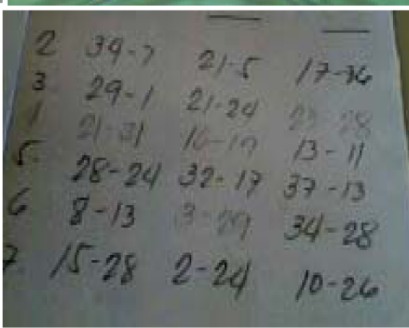 2 34-7 21-5 17-36
3 29-1 21-24 23-28
1 21-31 16-19 13-11
5. 28-24 32-17 37-13
6 8-13 3-29 34-28
7. 15-28 2-24 10-26